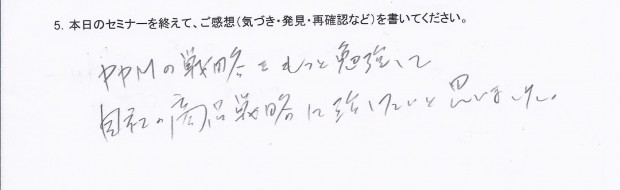 5. 本日のセミナーを終えて、ご感想（気づき・発見・再確認など）を書いてください。
PPMの戦略をもっと勉強して
自社の商品戦略に したいと思いました。